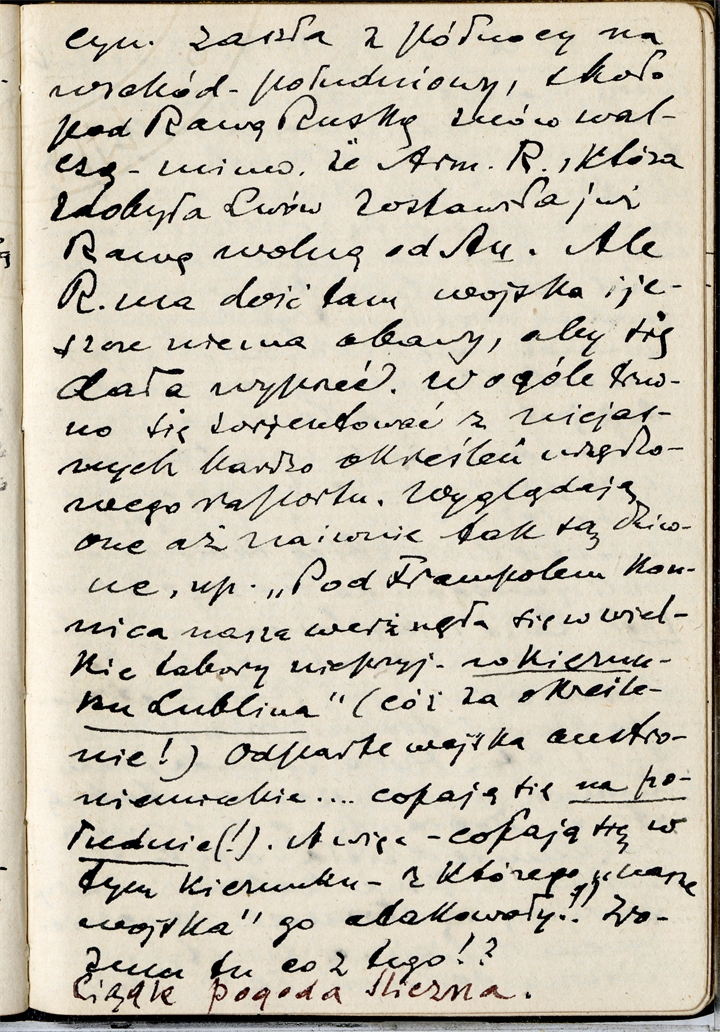 cyn. zaszła z północy na
wschód-południowy, skoło
pod Rawą Ruską znów wal-
czą - mimo, że Arm. R., która
zdobyła Lwów zostawiła już
Rawę wolną od Au. Ale
R. ma dość tam wojska i je-
szcze niema obawy, aby się
dała wyprzeć. W ogóle trud-
no się zorjentować z niejas-
nych bardzo określeń urzędo-
wego raportu. Wyglądają
one aż naiwnie tak są dziw-
ne, np. „Pod Frampolem kon-
nica nasza werżnęła się w wiel-
kie tabory nieprzyj. w kierun-
ku Lublina" (cóż za określe-
nie!) Odparte wojska austro-
niemieckie.... cofają się na po-
łudnie(!). A więc - cofają się w
tym kierunku - z którego „nasze
wojska" go atakowały!! Zro-
zum tu co z tego!?
Ciągle pogoda śliczna.